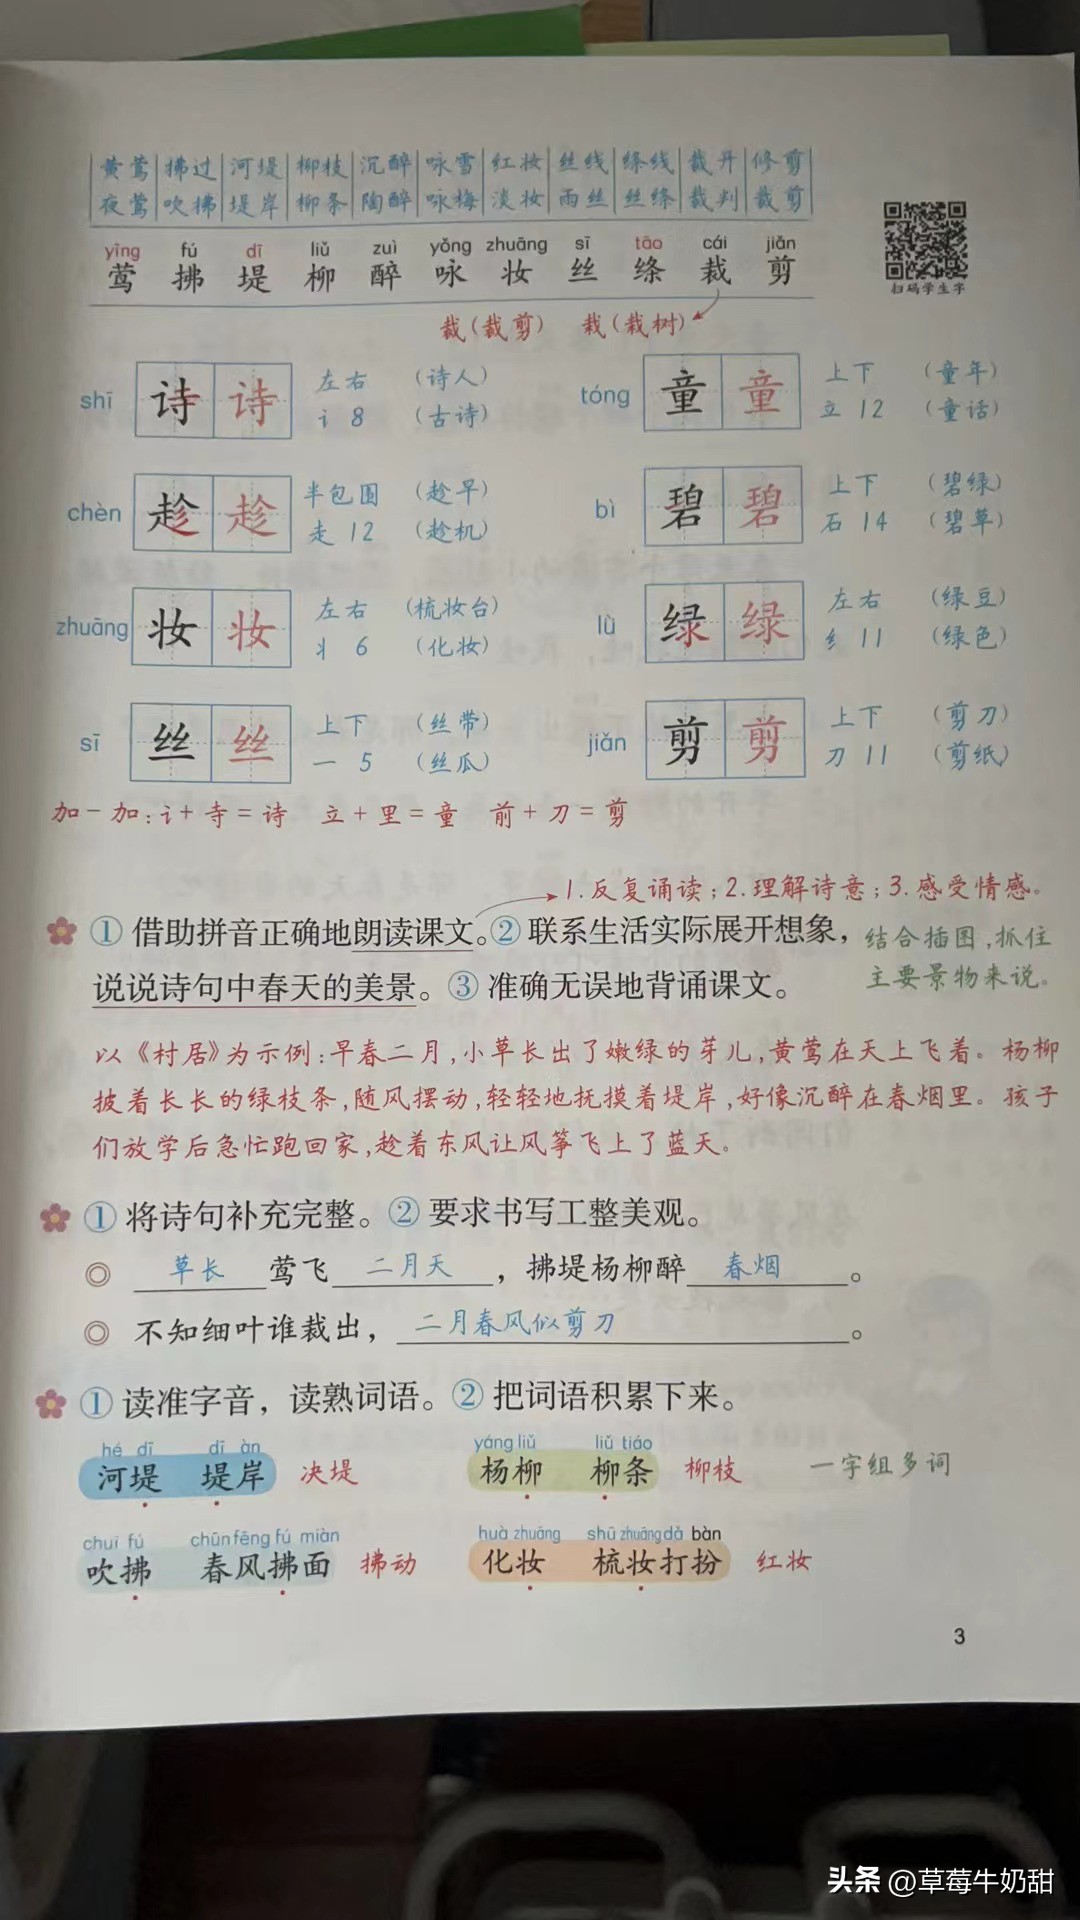 黄莺 拂过 河堤 柳枝 沉醉 咏雪 红妆 丝线 绦线 裁开 修剪
夜莺 吹拂 堤岸 柳条 陶醉 咏梅 淡妆 雨丝 丝绦 裁判 裁剪
yīng fú dī liǔ zuì yǒng zhuāng sī tāo cái jiǎn
莺 拂 堤 柳 醉 咏 妆 丝 绦 裁 剪
扫码学生字
裁(裁剪) 栽(栽树)
shī 诗 诗 左右 (诗人)
讠 8 (古诗)
tóng 童 童 上下 (童年)
立 12 (童话)
chèn 趁 趁 半包围 (趁早)
走 12 (趁机)
bì 碧 碧 上下 (碧绿)
石 14 (碧草)
zhuāng 妆 妆 左右 (梳妆台)
丬 6 (化妆)
lǜ 绿 绿 左右 (绿豆)
纟 11 (绿色)
sī 丝 丝 上下 (丝带)
一 5 (丝瓜)
jiǎn 剪 剪 上下 (剪刀)
刀 11 (剪纸)
加一加:讠+寺=诗 立+里=童 前+刀=剪
1.反复诵读;2.理解诗意;3.感受情感。
①借助拼音正确地朗读课文。②联系生活实际展开想象,
说说诗句中春天的美景。③准确无误地背诵课文。
结合插图,抓住
主要景物来说。
以《村居》为示例:早春二月,小草长出了嫩绿的芽儿,黄莺在天上飞着。杨柳
披着长长的绿枝条,随风摆动,轻轻地抚摸着堤岸,好像沉醉在春烟里。孩子
们放学后急忙跑回家,趁着东风让风筝飞上了蓝天。
①将诗句补充完整。②要求书写工整美观。
◎ 草长莺飞二月天,拂堤杨柳醉春烟。
◎ 不知细叶谁裁出,二月春风似剪刀。
①读准字音,读熟词语。②把词语积累下来。
hé dī dī àn yáng liǔ liǔ tiáo
河堤 堤岸 决堤 杨柳 柳条 柳枝 一字组多词
chuī fú chūn fēng fú miàn huà zhuāng shū zhuāng dǎ bàn
吹拂 春风拂面 拂动 化妆 梳妆打扮 红妆
3
头条 @草莓牛奶甜